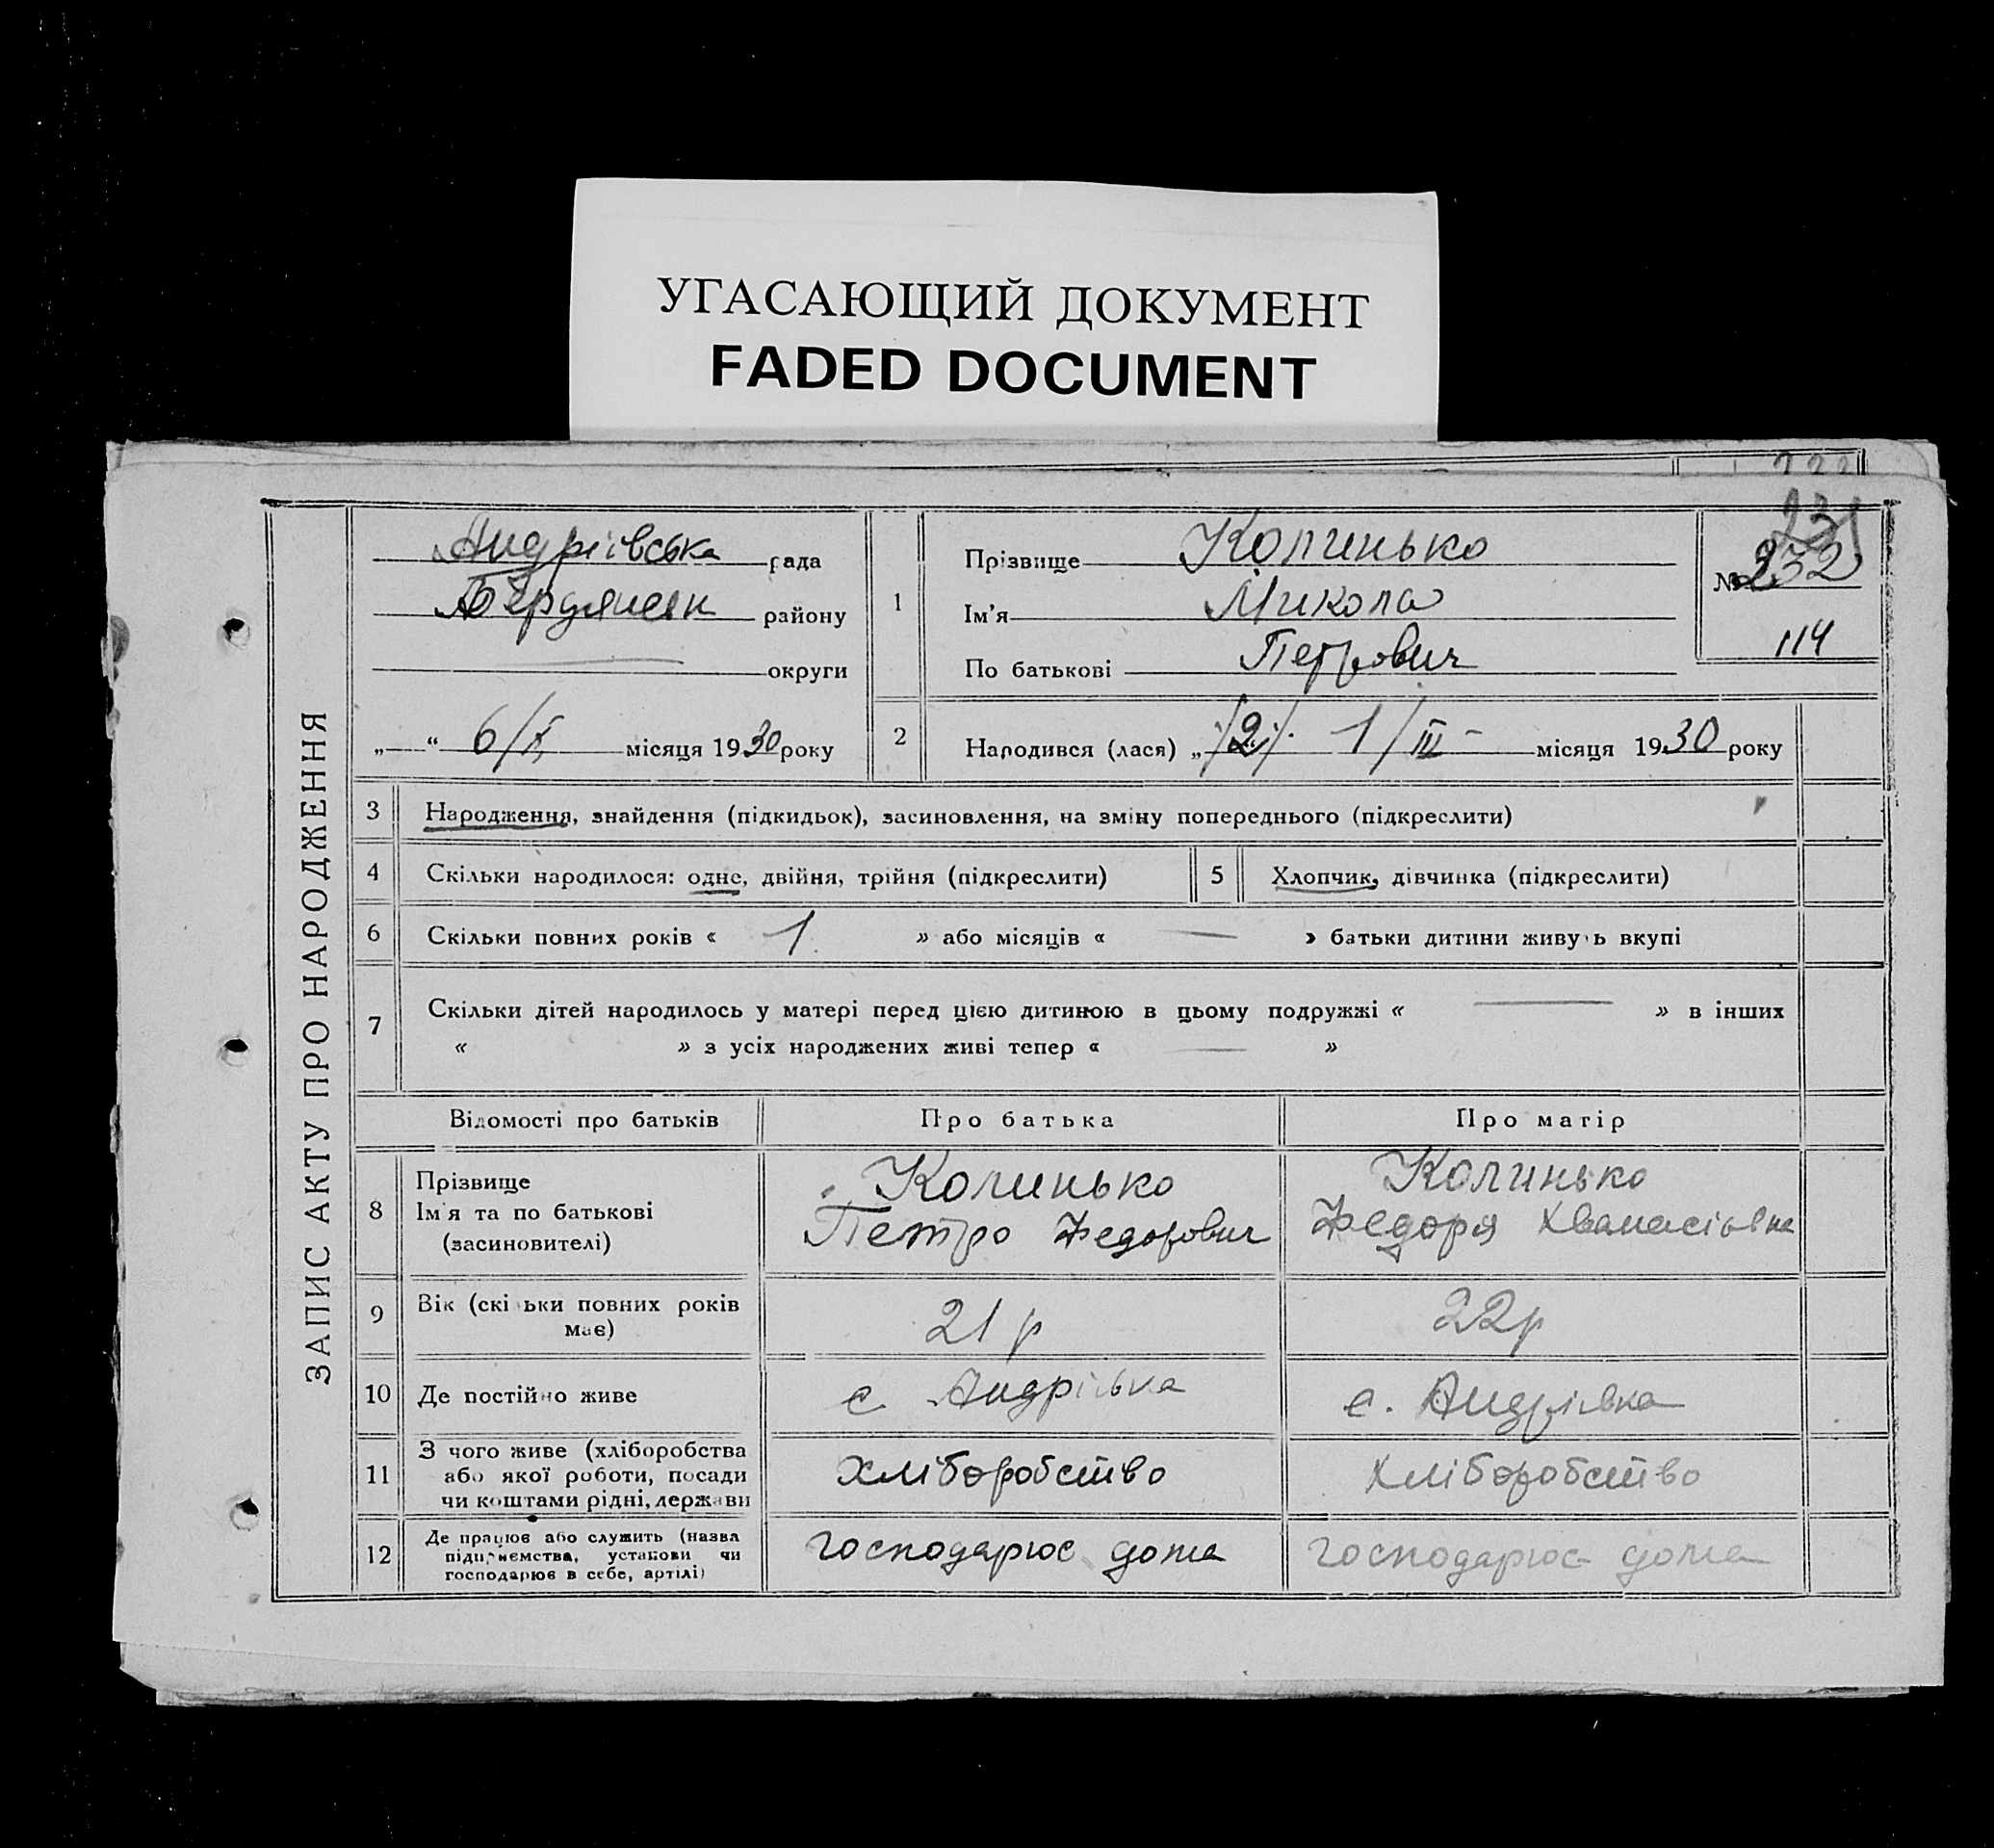 УГАСАЮЩИЙ ДОКУМЕНТ
FADED DOCUMENT
ЗАПИС АКТУ ПРО НАРОДЖЕННЯ
Андріївська рада
Бердянськ району
округи
„ “ 6/X місяця 1930 року
1
Прізвище Колинько
Ім'я Микола
По батькові Петрович
231
№ 232
114
2
Народився (лася) „ /2/. 1/III - місяця 1930 року
3 Народження, знайдення (підкидьок), засиновлення, на зміну попереднього (підкреслити)
4 Скільки народилося: одне, двійня, трійня (підкреслити) 5 Хлопчик, дівчинка (підкреслити)
6 Скільки повних років « 1 » або місяців « — » батьки дитини живуть вкупі
7 Скільки дітей народилось у матері перед цією дитиною в цьому подружжі « — » в інших
« » з усіх народжених живі тепер « — »
Відомості про батьків Про батька Про матір
8 Прізвище
Ім'я та по батькові
(засиновителі)
Колинько
Петро Федорович
Колинько
Федоря Хванасіівна
9 Вік (скільки повних років
має)
21 р
22р
10 Де постійно живе
с. Андрівка
с. Андрівка
11 З чого живе (хліборобства
або якої роботи, посади
чи коштами рідні, держави
хліборобство
хліборобство
12 Де працює або служить (назва
підприємства, установи чи
господарює в себе, артілі)
господарює дома
господарює дома